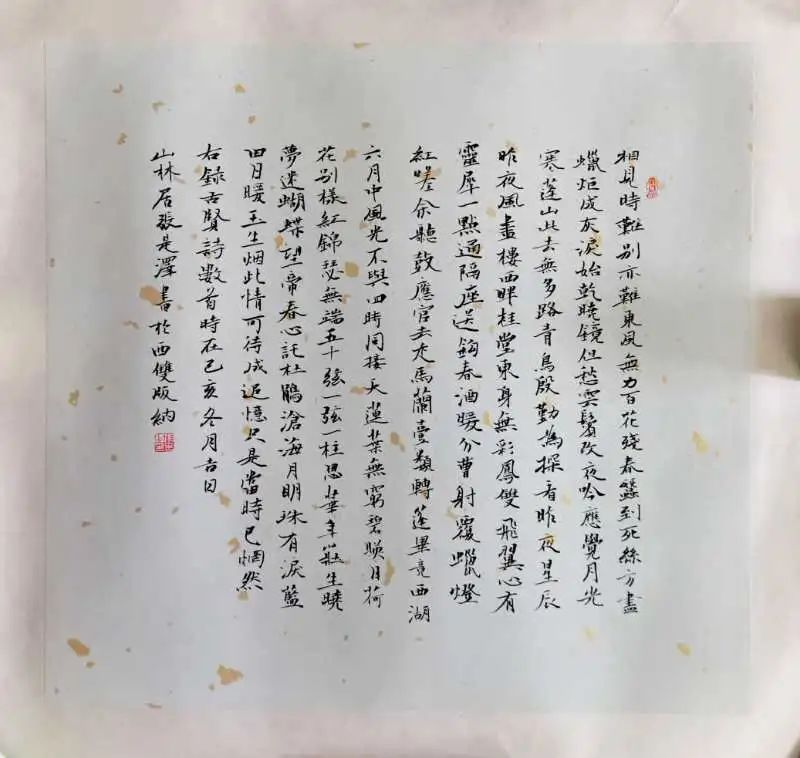 相見時難別亦難東風無力百花殘春蠶到死絲方盡
蠟炬成灰淚始乾曉鏡但愁雲鬢改夜吟應覺月光
寒蓬山此去無多路青鳥殷勤為探看昨夜星辰
昨夜風畫樓西畔桂堂東身無彩鳳雙飛翼心有
靈犀一點通隔座送鉤春酒暖分曹射覆蠟燈
紅嗟余聽鼓應官去走馬蘭臺類轉蓬畢竟西湖
六月中風光不與四時同接天蓮葉無窮碧映日荷
花別樣紅錦瑟無端五十弦一弦一柱思華年莊生曉
夢迷蝴蝶望帝春心託杜鵑滄海月明珠有淚藍
田日暖玉生烟此情可待成追憶只是當時已惘然
右錄古賢詩數首時在己亥冬月吉日
山林居張是澤書於西雙版納